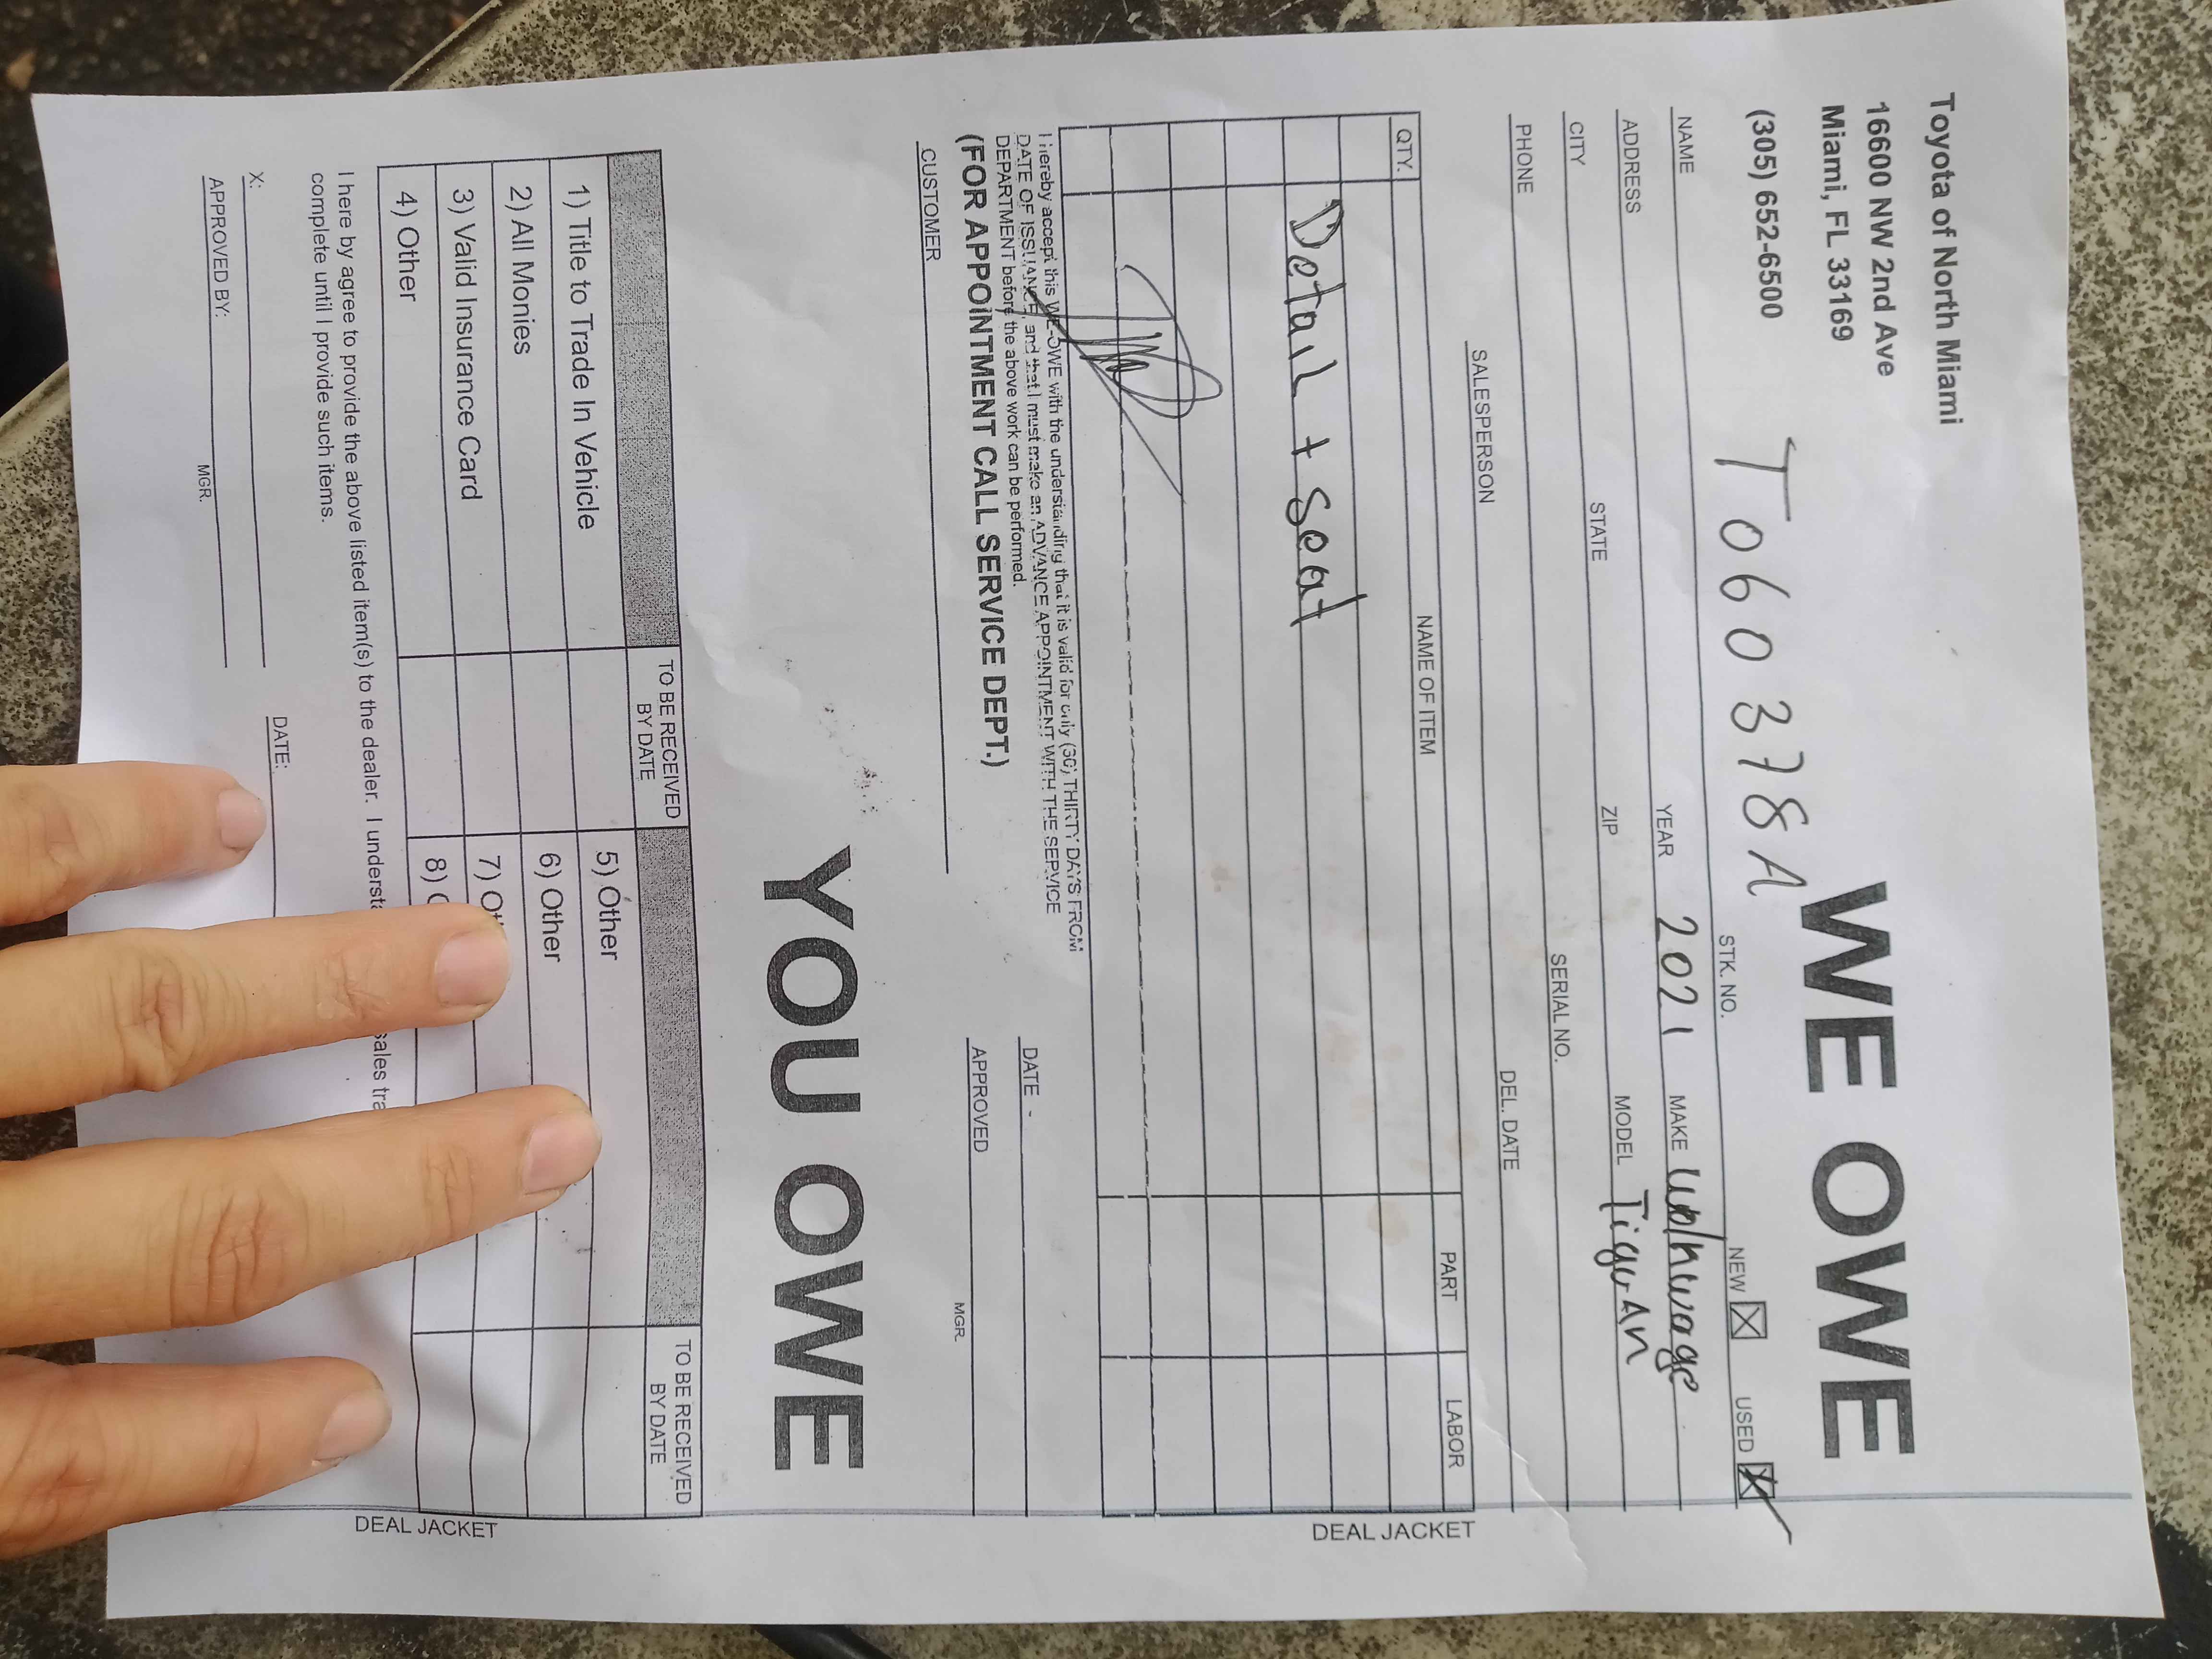 Toyota of North Miami
16600 NW 2nd Ave
Miami, FL 33169
(305) 652-6500
T060378A
WE OWE
STK. NO. NEW USED
NAME YEAR 2021 MAKE Wolhwvage
ADDRESS STATE ZIP MODEL TiguAn
CITY SERIAL NO.
PHONE DEL. DATE
SALESPERSON
QTY. NAME OF ITEM PART LABOR
Detail + Seat
I hereby accept this WE-OWE with the understanding that it is valid for only (30) THIRTY DAYS FROM
DATE OF ISSUANCE, and that I must make an ADVANCE APPOINTMENT WITH THE SERVICE
DEPARTMENT before the above work can be performed.
(FOR APPOINTMENT CALL SERVICE DEPT.)
DATE
CUSTOMER APPROVED
MGR.
DEAL JACKET
YOU OWE
TO BE RECEIVED BY DATE TO BE RECEIVED BY DATE
1) Title to Trade In Vehicle 5) Other
2) All Monies 6) Other
3) Valid Insurance Card 7) Ot
4) Other 8) O
DEAL JACKET
I here by agree to provide the above listed item(s) to the dealer. I understa sales tra
complete until I provide such items.
X: DATE:
APPROVED BY:
MGR.